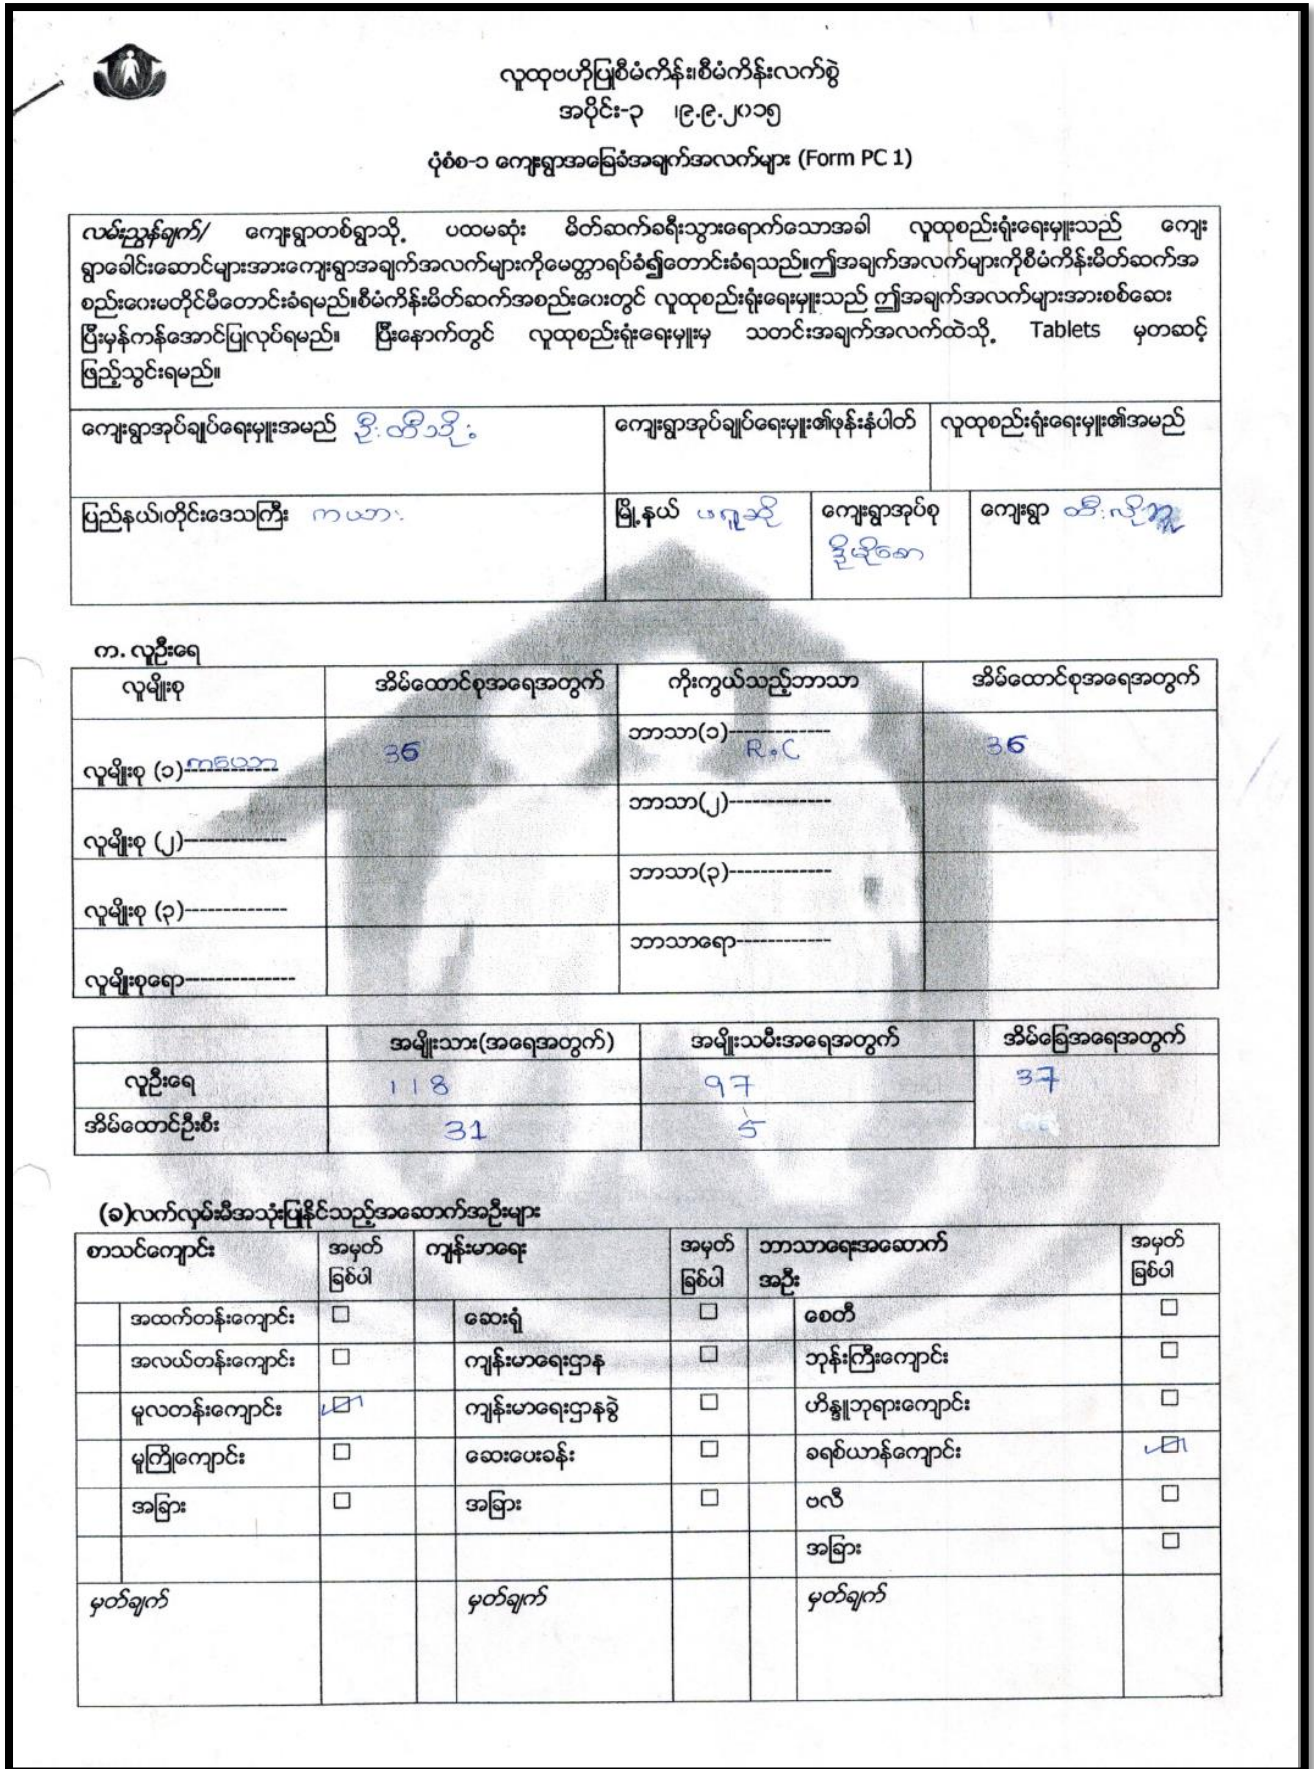 လူထုဗဟိုပြုစီမံကိန်း၊စီမံကိန်းလက်စွဲ
အပိုင်း-၃ ၊၉.၉.၂၀၁၅
ပုံစံစ-၁ ကျေးရွာအခြေခံအချက်အလက်များ (Form PC 1)
လမ်းညွှန်ချက်/ ကျေးရွာတစ်ရွာသို့ ပထမဆုံး မိတ်ဆက်ခရီးသွားရောက်သောအခါ လူထုစည်းရုံးရေးမှူးသည် ကျေး
ရွာခေါင်းဆောင်များအားကျေးရွာအချက်အလက်များကိုမေတ္တာရပ်ခံ၍တောင်းခံရသည်။ဤအချက်အလက်များကိုစီမံကိန်းမိတ်ဆက်အ
စည်းဝေးမတိုင်မီတောင်းခံရမည်။စီမံကိန်းမိတ်ဆက်အစည်းဝေးတွင် လူထုစည်းရုံးရေးမှူးသည် ဤအချက်အလက်များအားစစ်ဆေး
ပြီးမှန်ကန်အောင်ပြုလုပ်ရမည်။ ပြီးနောက်တွင် လူထုစည်းရုံးရေးမှူးမှ သတင်းအချက်အလက်ထဲသို့ Tablets မှတဆင့်
ဖြည့်သွင်းရမည်။
ကျေးရွာအုပ်ချုပ်ရေးမှူးအမည် ဦးတီသိုး ကျေးရွာအုပ်ချုပ်ရေးမှူး၏ဖုန်းနံပါတ် လူထုစည်းရုံးရေးမှူး၏အမည်
ပြည်နယ်၊တိုင်းဒေသကြီး ကယား မြို့နယ် ဖရူဆို ကျေးရွာအုပ်စု ကျေးရွာ
က. လူဦးရေ
လူမျိုးစု အိမ်ထောင်စုအရေအတွက် ကိုးကွယ်သည့်ဘာသာ အိမ်ထောင်စုအရေအတွက်
လူမျိုးစု (၁)------------- 36 ဘာသာ(၁)------------- R.C 36
လူမျိုးစု (၂)------------- ဘာသာ(၂)-------------
လူမျိုးစု (၃)------------- ဘာသာ(၃)-------------
လူမျိုးစုရော-------------- ဘာသာရော------------
အမျိုးသား(အရေအတွက်) အမျိုးသမီးအရေအတွက် အိမ်ခြေအရေအတွက်
လူဦးရေ 118 97 37
အိမ်ထောင်ဦးစီး 31 5
(ခ)လက်လှမ်းမီအသုံးပြုနိုင်သည့်အဆောက်အဦးများ
စာသင်ကျောင်း အမှတ်ခြစ်ပါ ကျန်းမာရေး အမှတ်ခြစ်ပါ ဘာသာရေးအဆောက်အဦး အမှတ်ခြစ်ပါ
အထက်တန်းကျောင်း □ ဆေးရုံ □ စေတီ □
အလယ်တန်းကျောင်း □ ကျန်းမာရေးဌာန □ ဘုန်းကြီးကျောင်း □
မူလတန်းကျောင်း ☑ ကျန်းမာရေးဌာနခွဲ □ ဟိန္ဒူဘုရားကျောင်း □
မူကြိုကျောင်း □ ဆေးပေးခန်း □ ခရစ်ယာန်ကျောင်း ☑
အခြား □ အခြား □ ဗလီ □
အခြား □
မှတ်ချက် မှတ်ချက် မှတ်ချက်